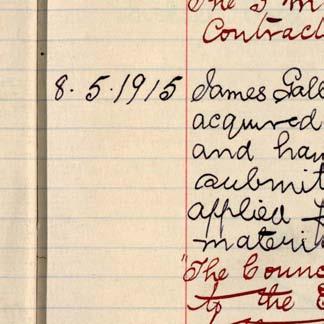 The
Contract
8.5.1915 James Gall
acquired
and han
submit
applied
materi
"The Counc
to the